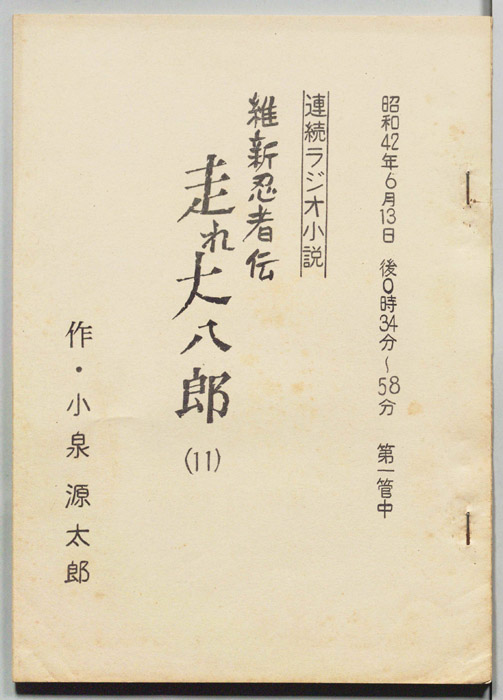 昭和42年6月13日 後0時34分~58分 第一管中
連続ラジオ小説
維新忍者伝
走れ大八郎
(11)
作・小泉源太郎